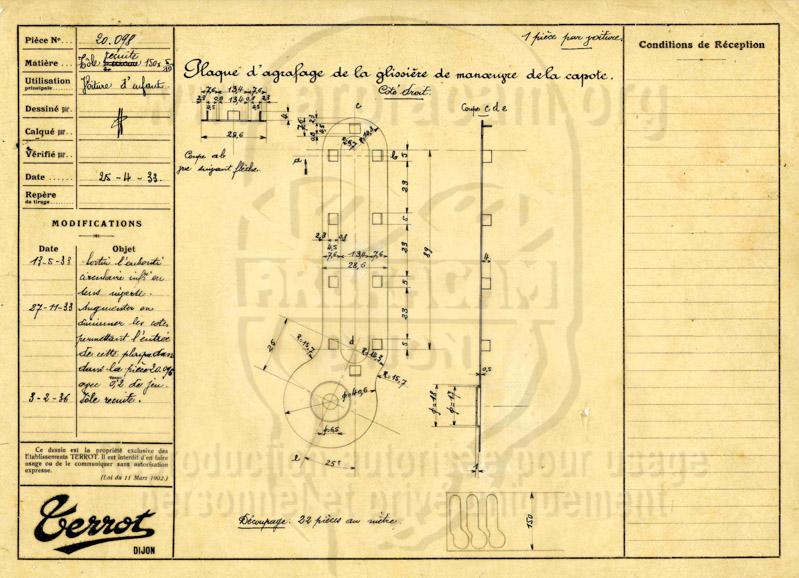 Pièce No... 20.098
Matière... Tôle recuite 150 x 5/10
Utilisation principale Voiture d'enfant
Dessiné par.
Calqué par..
Vérifié par..
Date ...... 25-4-33.
Repère de tirage
MODIFICATIONS
Date Objet
17-5-33 Sortir l'embouti
circulaire infr en
sens inverse.
27-11-33 Augmenter ou
diminuer les cotes
permettant l'entrée
de cette plaque dans
dans la pièce 20.096
avec 0,2 de jeu.
3-2-36 Tôle recuite.
Ce dessin est la propriété exclusive des
Etablissements TERROT. Il est interdit d'en faire
usage ou de le communiquer sans autorisation
expresse.
(Loi du 11 Mars 1902.)
Terrot
DIJON
1 pièce par voiture.
Plaque d'agrafage de la glissière de manœuvre de la capote.
Côté droit.
7,6 13,4 7,6
2,3 0,8 13,4 0,8 2,3
4,5 4,5
4
28,6
Coupe ab
vue suivant flèche.
c
a
b
d
e
Coupe cde
5
23
5
23
5
23
5
89
2,3 0,8
4,5
7,6 13,4 7,6
28,6
26
R=15,7
R=14,3
R=15,7
φ=40,6
25°
4
0,5
φ=18
φ=17
1
150
Découpage: 22 pièces au mètre.
Conditions de Réception
www.arbracam.org
ARBRACAM
DIJON
Reproduction autorisée pour usage
personnel et privé uniquement